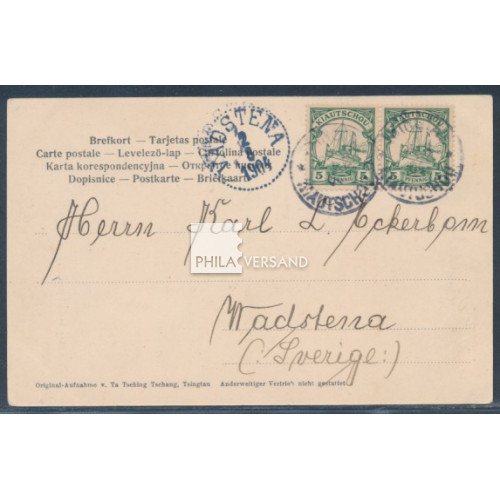 Brefkort — Tarjetas postal
Carte postale — Levelező-lap — Cartolina postale
Karta korespondencyjna — Открытое
Dopisnice — Postkarte — Briefkaart
VADSTENA
1904
KIAUTSCHOU
5 PFENNIG 5
KIAUTSCHOU
5 PFENNIG 5
Herrn Karl L. Eckerbom
PHILA VERSAND
Wadstena
(Sverige:)
Original-Aufnahme v. Ta Tsching Tschang, Tsingtau. Anderweitiger Vertrieb nicht gestattet.